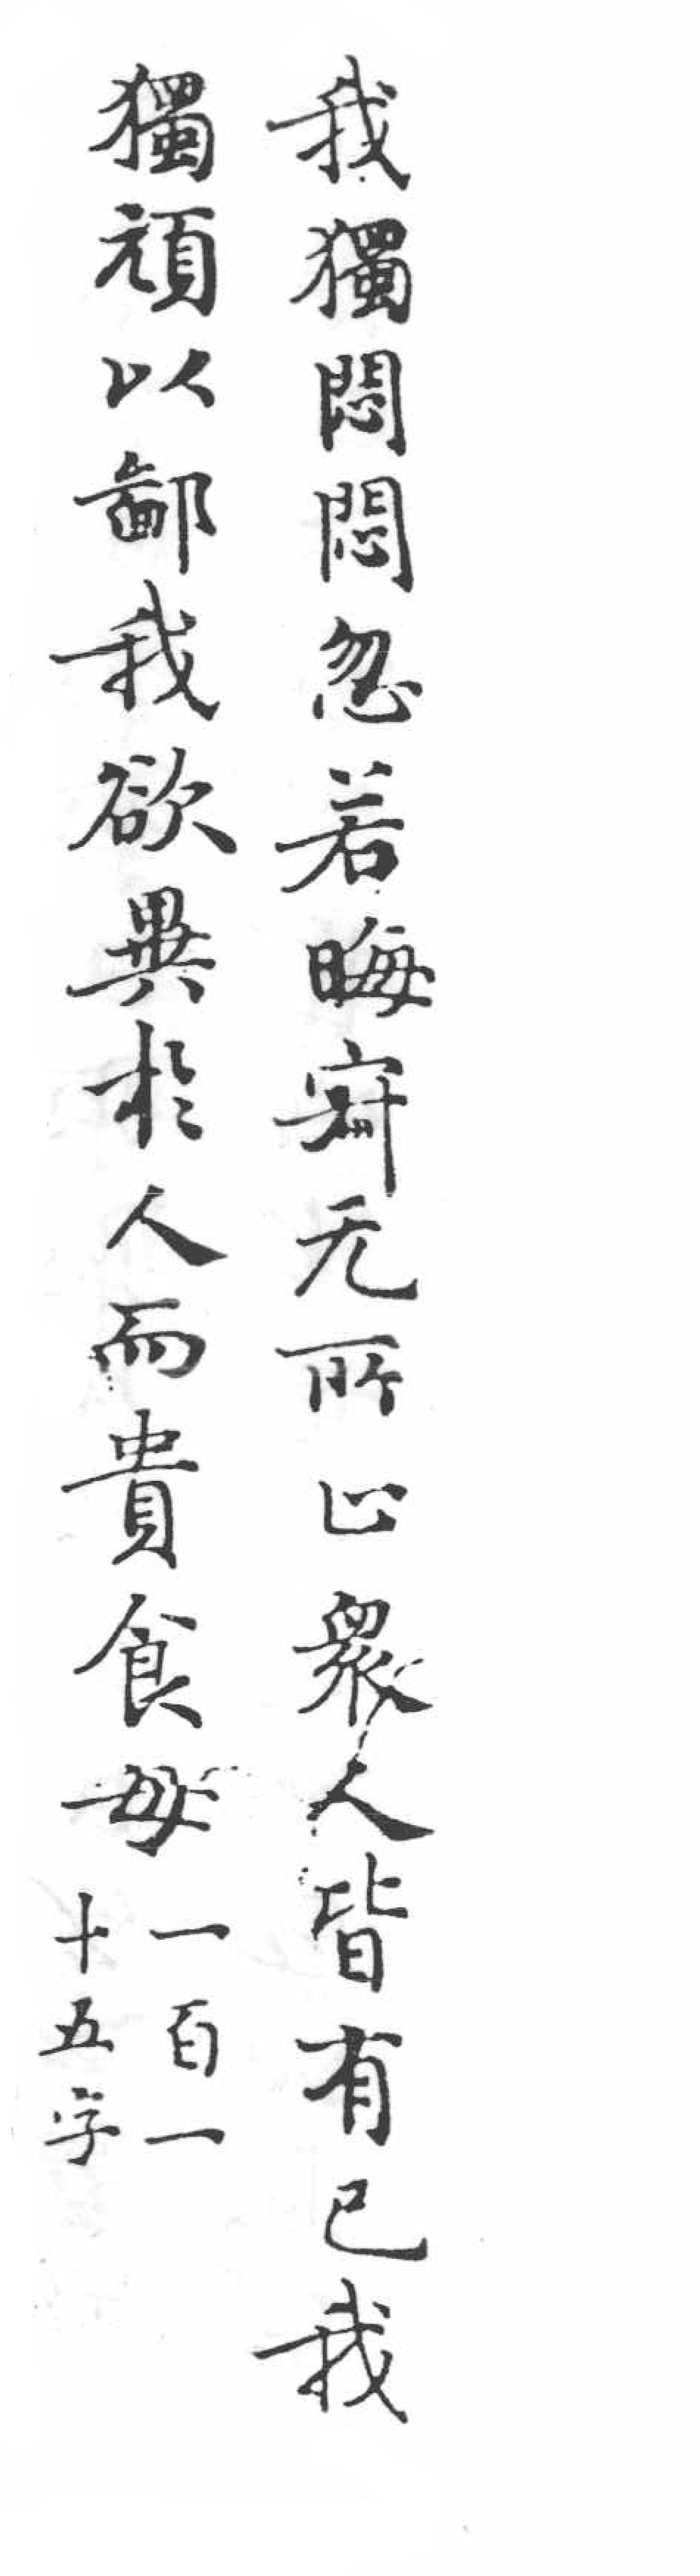 我獨悶悶忽若晦㝛无所止衆人皆有已我
獨頑以鄙我欲異於人而貴食母
一百一
十五字